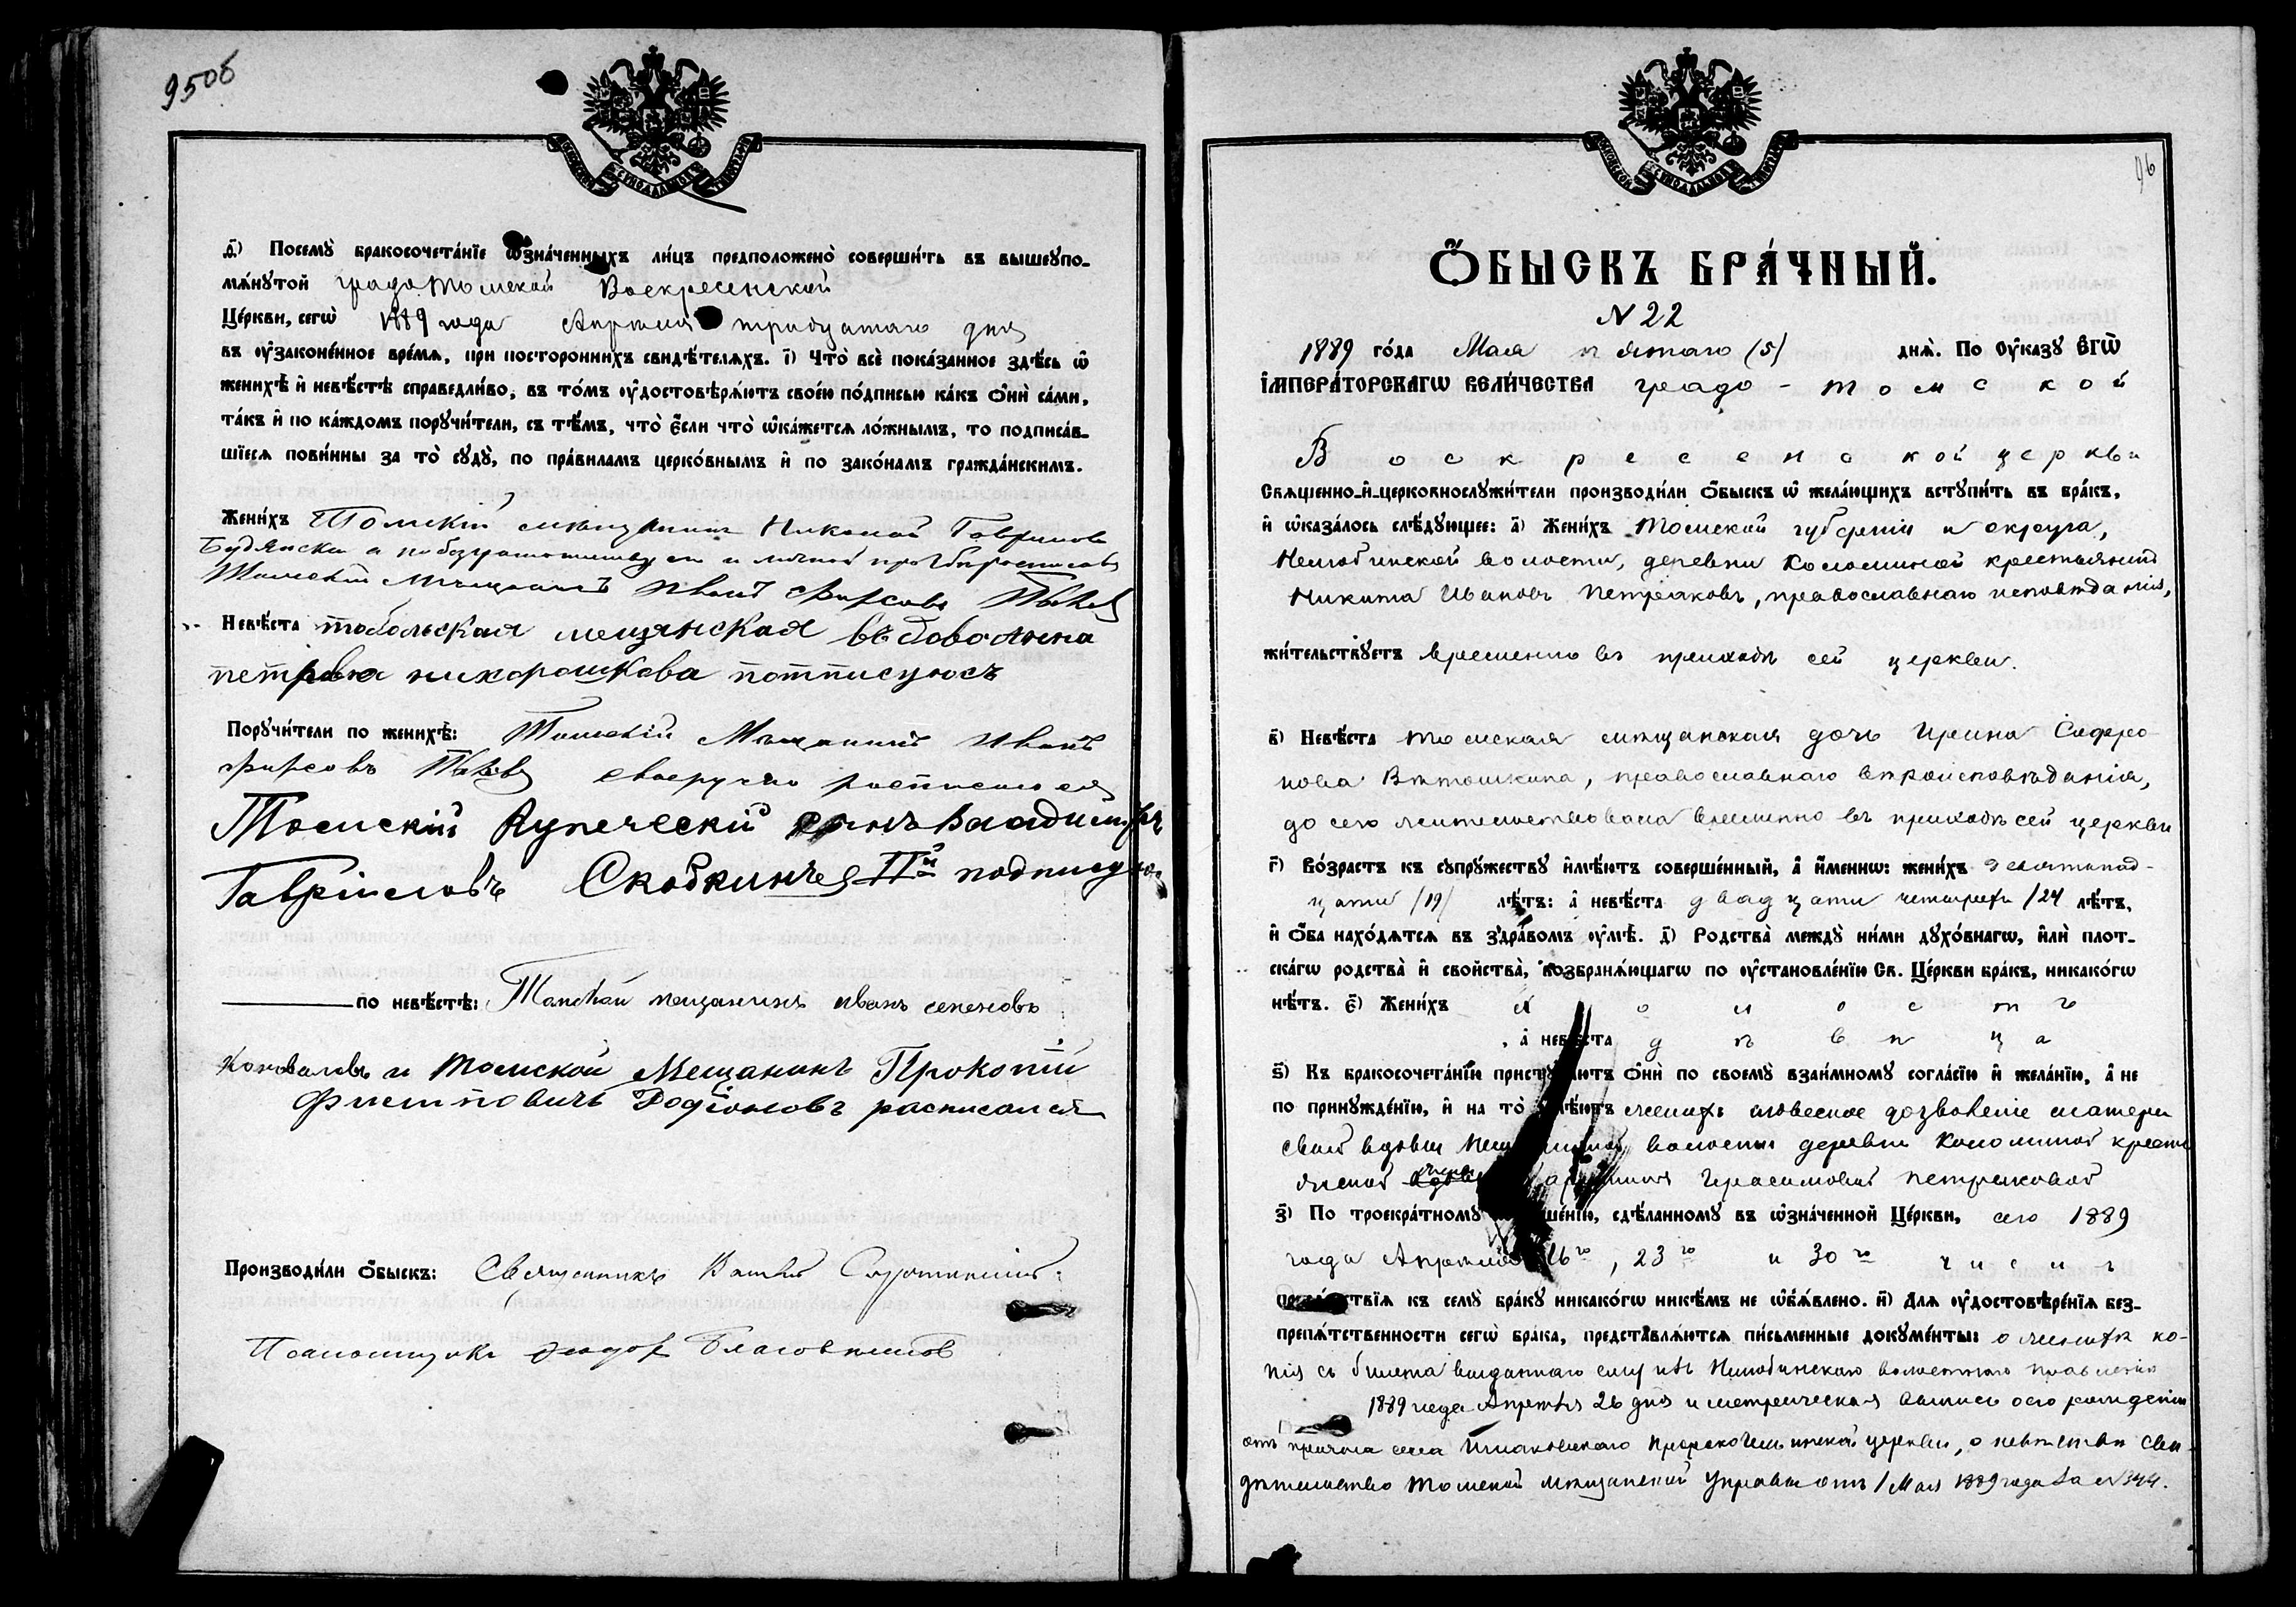 95об
ѳ҃) Посемꙋ̀ бракосочета́нїе ѡ҆зна́ченныхъ ли́цъ предположено̀ соверши́ть въ вышеꙋпо-
мѧ́нꙋтой градо Томской Воскресенской
Це́ркви, сегѡ̀ 1889 года Апреля тридцатаго дня
въ ᲂу҆законе́нное вре́мѧ, при посторо́ннихъ свидѣ́телѧхъ. і҃) Что̀ всѐ пока́занное здѣ́сь ѡ҆
женихѣ̀ и҆ невѣ́стѣ справедли́во, въ то́мъ ᲂу҆достовѣрѧ́ютъ свое́ю по́дписью ка́къ ѻ҆нѝ са́ми,
та́къ и҆ по ка́ждомъ порꙋчи́тели, съ тѣ́мъ, что̀ є҆́сли что̀ ѡ҆ка́жетсѧ ло́жнымъ, то подписа́в-
шїесѧ пови́нны за то̀ сꙋдꙋ̀, по пра́виламъ церко́внымъ и҆ по зако́намъ гражда́нскимъ.
Жени́хъ Томскій мѣщанинъ Николай Гавриловъ
а по безграмотству его и личной просьбе росписался
Томскій Мѣщанинъ Иванъ Фирсовъ
Невѣ́ста тобольская мещянская въдова Анна
петровна нихорошкова потписуюсъ
Порꙋчи́тели по женихѣ̀: Томскій Мѣщанинъ Иванъ
Фирсовъ своеручно росписался
Томскій Купеческій сынъ Владимиръ
Гавріиловъ Скобкинъ IIй подписую
по невѣ́стѣ: Томскай мещанинъ иванъ семеновъ
Коновалов и Томской Мещанинъ Прокопій
Филиповичъ Родіоновъ расписался
Производи́ли ѻ҆́быскъ: Священникъ
Псаломщикъ Ѳеодоръ
96
Ѻ҆́БЫСКЪ БРА́ЧНЫЙ.
N 22
1889 го́да Мая пятаго (5) днѧ̀. По ᲂу҆ка́зꙋ Є҆ГѠ̀
І҆МПЕРА́ТОРСКАГѠ ВЕЛИ́ЧЕСТВА градо-Томской
Воскресенской церкви
Сващенно-и҆-церковнослꙋжи́тели производи́ли ѻ҆́быскъ ѡ҆ жела́ющихъ встꙋпи́ть въ бра́къ,
и҆ ѡ҆каза́лось слѣ́дꙋющее: а҃) Жени́хъ Томской губерніи и округа,
Нелюбинской волости, деревни Коломиной крестьянинъ
Никита Ивановъ Петраковъ, православнаго исповѣданія,
жи́тельствꙋетъ временно въ приходѣ сей церкви.
в҃) Невѣ́ста Томская мѣщанская дочь Ирина Сафро-
нова православнаго вѣроисповѣданія,
до сего жительствовала временно въ приходѣ сей церкви
г҃) Во́зрастъ къ сꙋпрꙋ́жествꙋ и҆мѣ́ютъ соверше́нный, а҆ и҆́менно: жени́хъ девятнад-
цати /19/ лѣ́тъ: а҆ невѣ́ста двадцати четырехъ /24 лѣ́тъ,
и҆ ѻ҆́ба нахо́дѧтсѧ въ здра́вомъ ᲂу҆мѣ̀. д҃) Родства̀ междꙋ̀ ни́ми дꙋхо́внагѡ, и҆лѝ плот-
ска́гѡ родства̀ и҆ свойства̀, возбранѧ́ющагѡ по ᲂу҆становле́нїю Св. Це́ркви бра́къ, никако́гѡ
нѣ́тъ. є҃) Жени́хъ холостъ
, а҆ невѣ́ста дѣвица
ѕ҃) Къ бракосочета́нїю пристꙋпа́ютъ ѻ҆нѝ по своемꙋ̀ взаи́мномꙋ согла́сїю и҆ жела́нїю, а҆ не
по принꙋжде́нїю, и҆ на то̀ и҆мѣ́ютъ женихъ словесное дозволеніе матери
своей вдовы волости деревни Коломиной кресть
янской Герасимовой Петраковой
з҃) По троекра́тномꙋ сдѣ́ланномꙋ въ ѡ҆зна́ченной Це́ркви, сего 1889
года Апреля 16го, 23го и 30го чиселъ
препѧ́тствїѧ къ семꙋ̀ бра́кꙋ никако́гѡ никѣ́мъ не ѡ҆б̾ѧ́влено. и҃) Для ᲂу҆достовѣре́нїѧ без-
препѧ́тственности сегѡ̀ бра́ка, представлѧ́ютсѧ пи́сьменные докꙋме́нты: о женихѣ ко-
пія съ билета выданнаго ему изъ Нелюбинскаго волостнаго правленія
1889 года Апрѣля 26 дня и метрическая выпись о его рожденіи
отъ причта села церкви, о невѣстѣ сви-
дѣтельство Томской мѣщанской Управы отъ 1 Мая 1889 года за N 344.